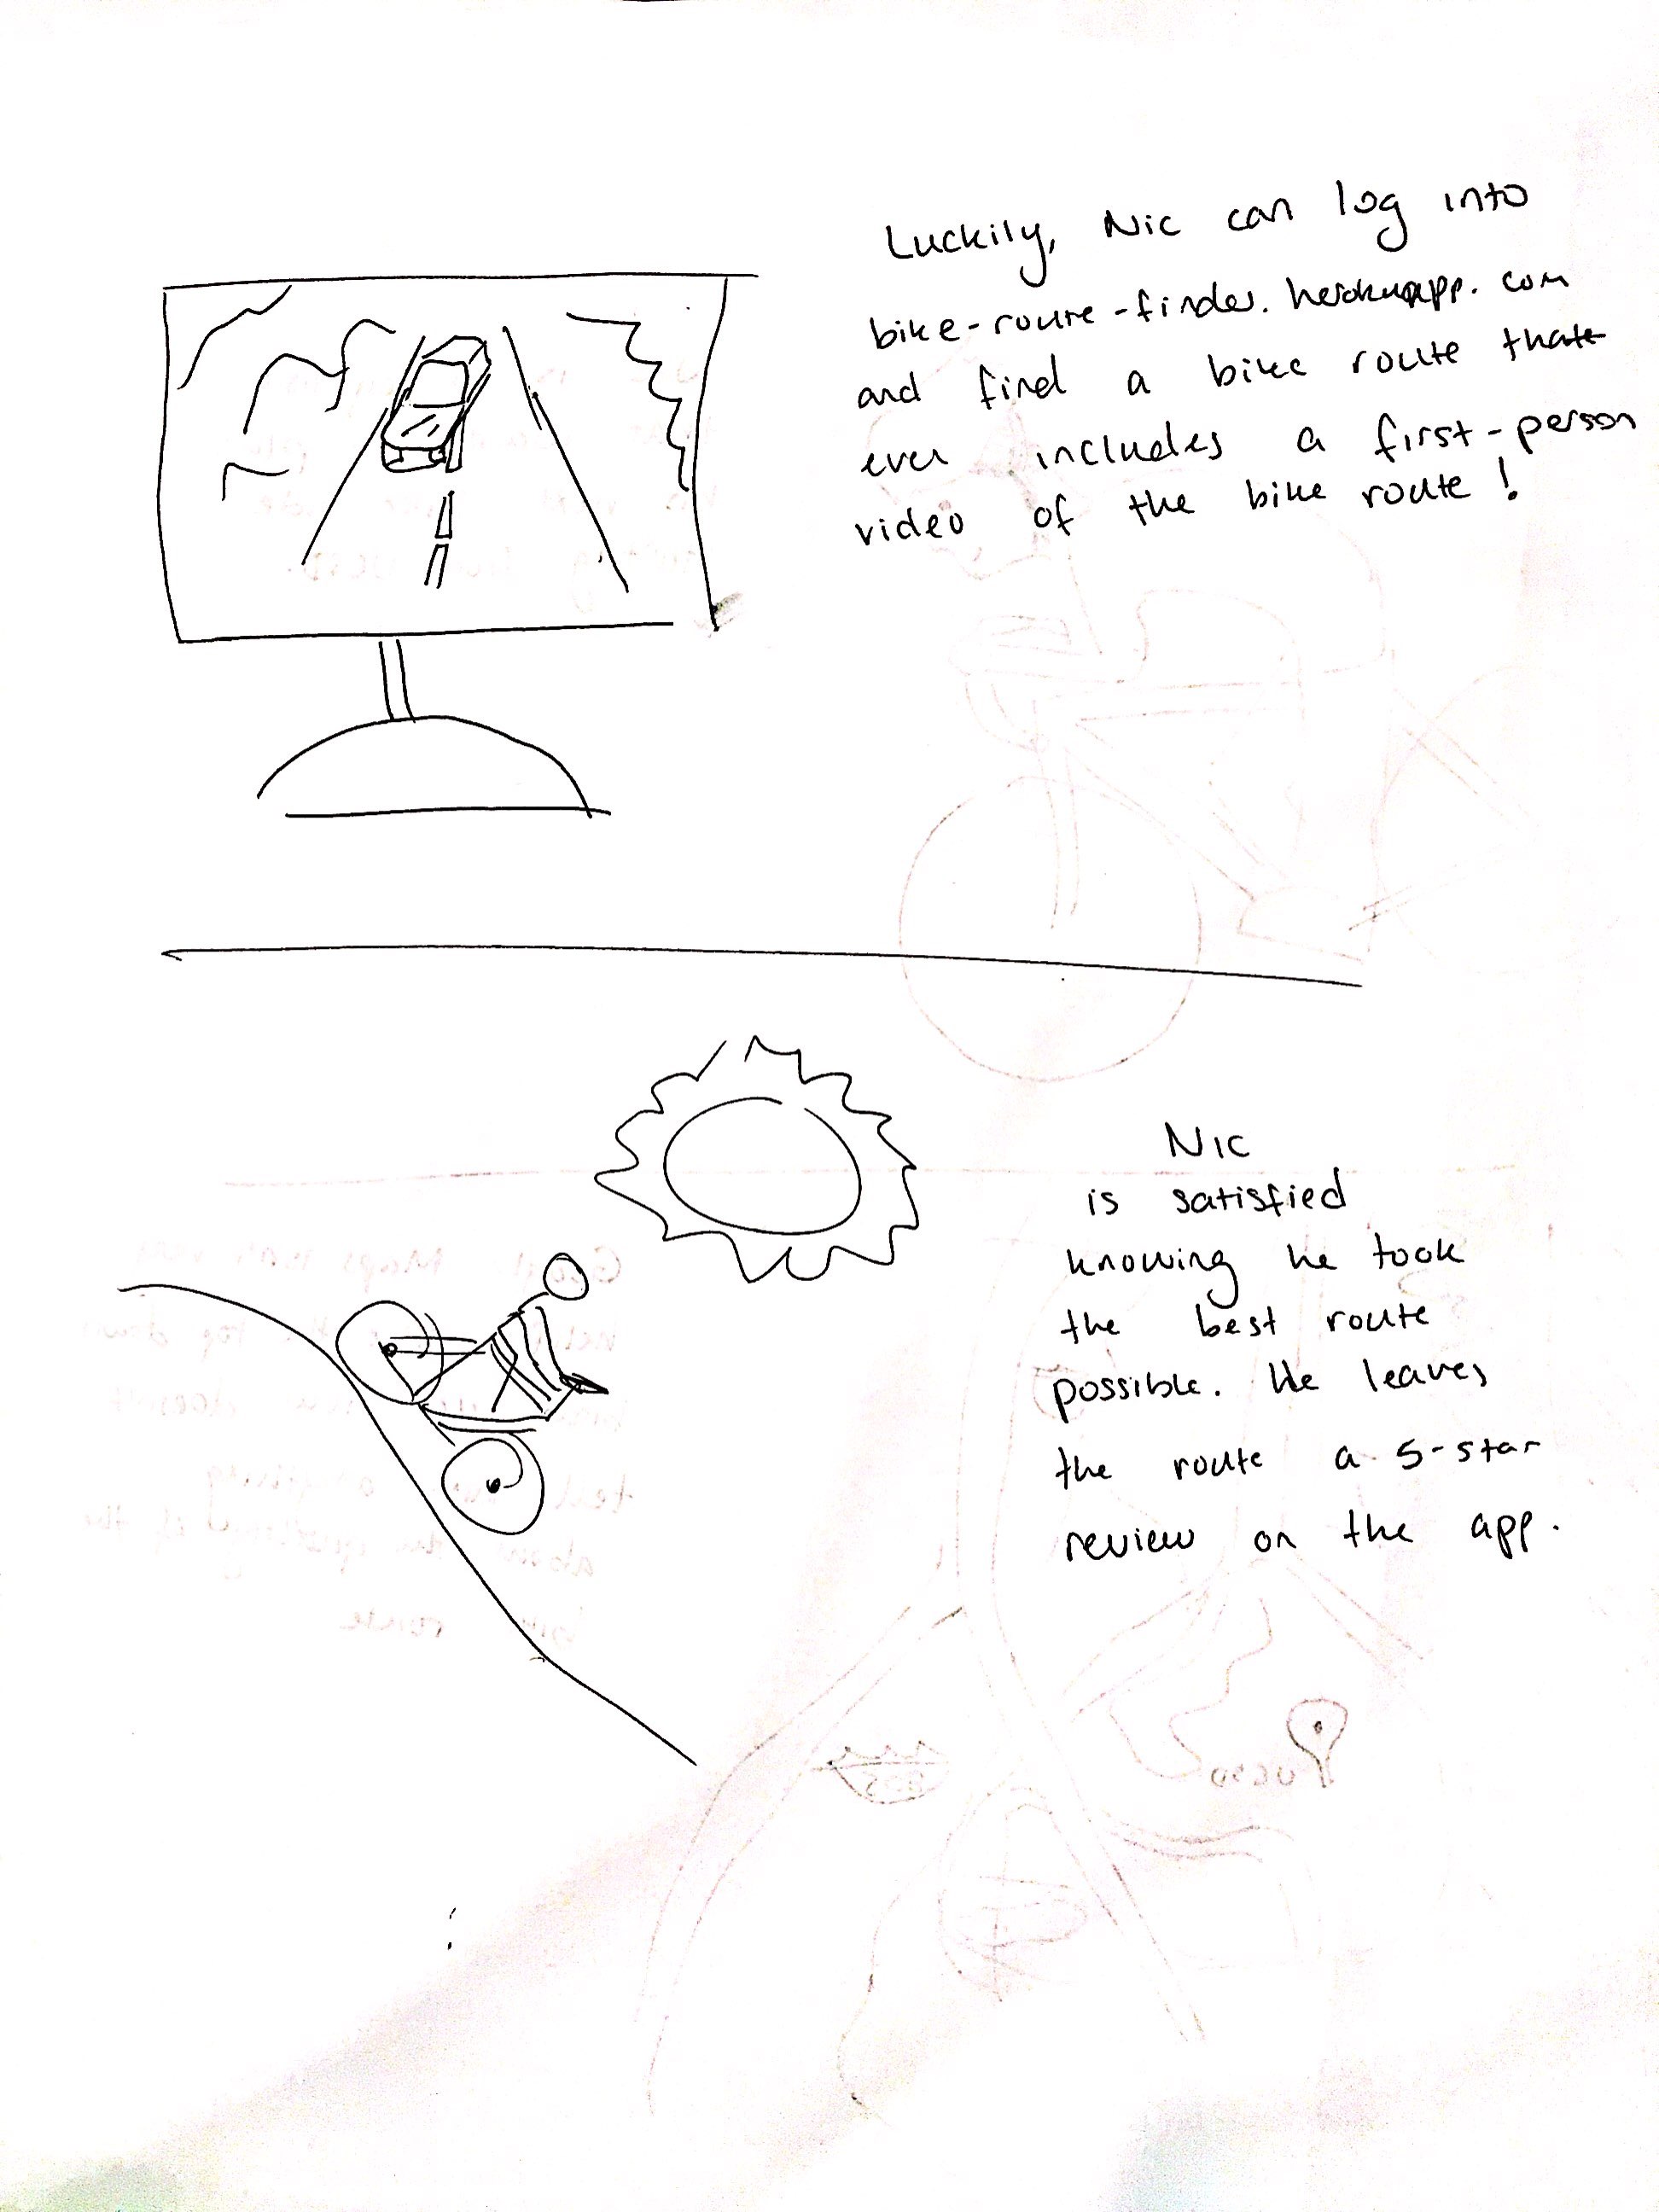 Luckily, Nic can log into
bike-route-finder.herokuapp.com
and find a bike route that
even includes a first-person
video of the bike route!
Nic
is satisfied
knowing he took
the best route
possible. He leaves
the route a 5-star
review on the app.
UCSD